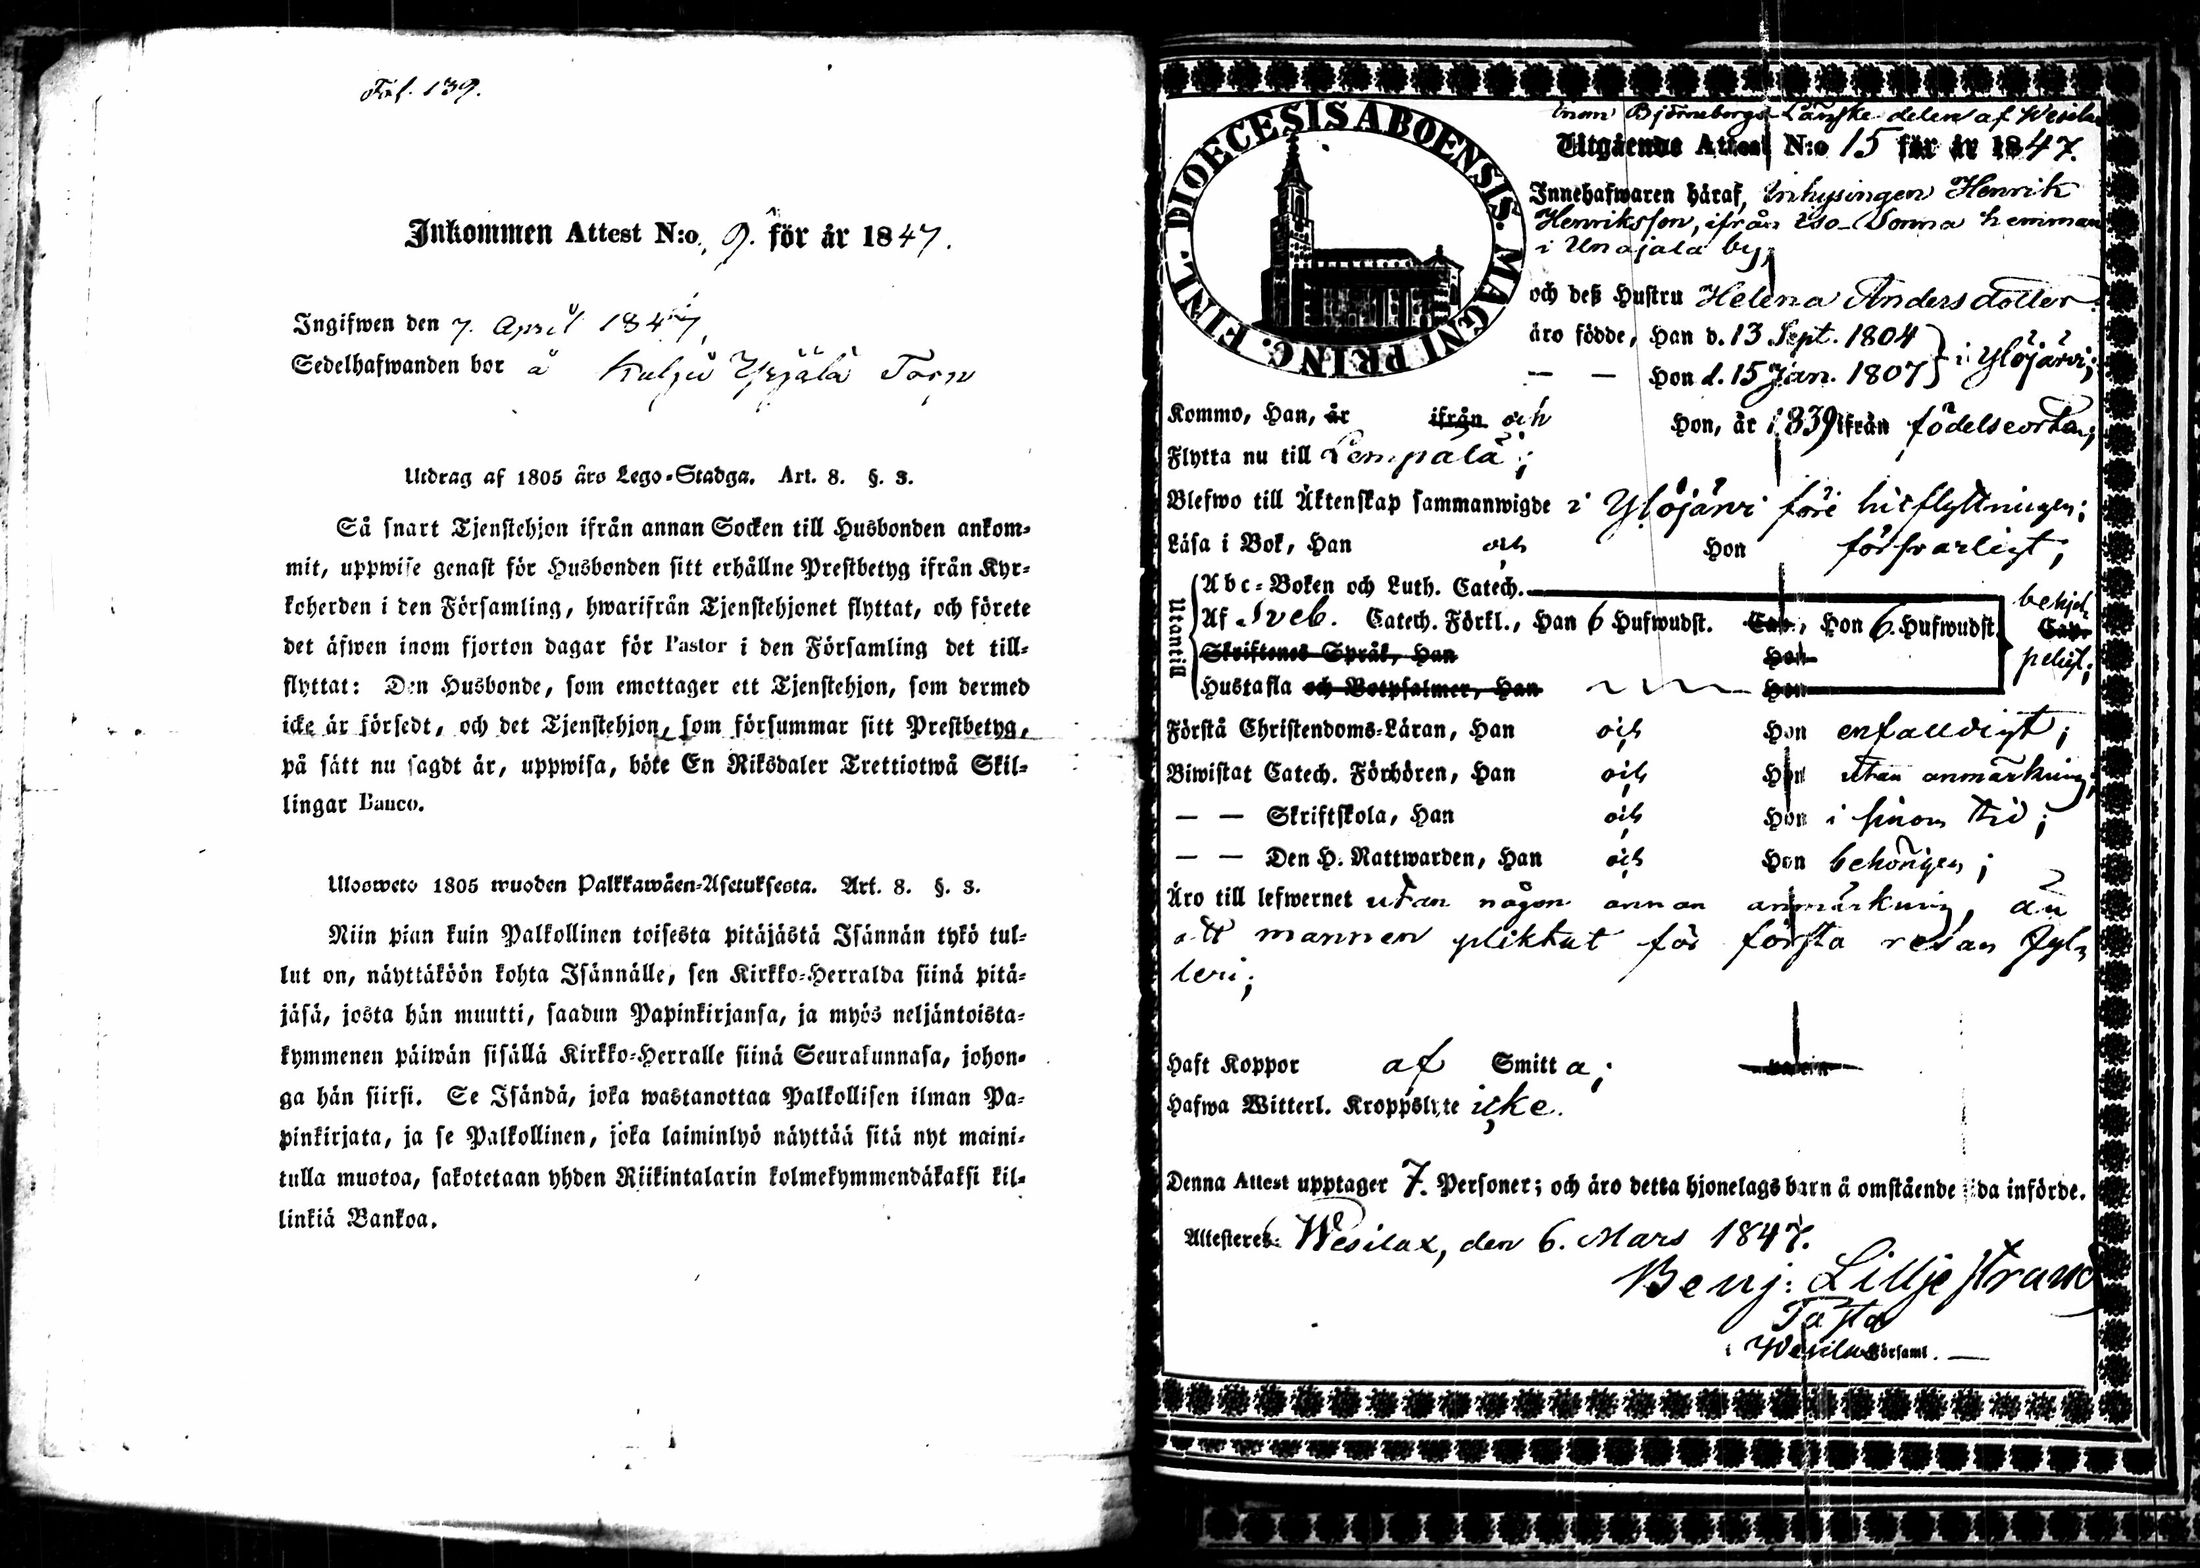 Fol. 139.
Inkommen Attest N:o 9. för år 1847.
Ingifwen den 7. April 1847,
Sedelhafwanden bor å Kuljü Yrjälä Torp
Utdrag af 1805 års Lego-Stadga. Art. 8. §. 3.
Så snart Tjenstehjon ifrån annan Socken till Husbonden ankom-
mit, uppwise genast för Husbonden sitt erhållne Prestbetyg ifrån Kyr-
koherden i den Församling, hwarifrån Tjenstehjonet flyttat, och förete
det äfwen inom fjorton dagar för Pastor i den Församling det till-
flyttat: Den Husbonde, som emottager ett Tjenstehjon, som dermed
icke är försedt, och det Tjenstehjon, som försummar sitt Prestbetyg,
på sätt nu sagdt är, uppwisa, böte En Riksdaler Trettiotwå Skil-
lingar Banco.
Ulosweto 1805 wuoden Palkkawäen-Asetuksesta. Art. 8. §. 3.
Niin pian kuin Palkollinen toisesta pitäjästä Isännän tykö tul-
lut on, näyttäköön kohta Isännälle, sen Kirkko-Herralda siinä pitä-
jäsä, josta hän muutti, saadun Papinkirjansa, ja myös neljäntoista-
kymmenen päiwän sisällä Kirkko-Herralle siinä Seurakunnasa, johon-
ga hän siirsi. Se Isändä, joka wastanottaa Palkollisen ilman Pa-
pinkirjata, ja se Palkollinen, joka laiminlyö näyttää sitä nyt maini-
tulla muotoa, sakotetaan yhden Riikintalarin kolmekymmendäkaksi kil-
linkiä Bankoa.
DIOECESIS ABOENSIS. MAGNI PRINC. FINL.
inom Björneborgs Länske delen af Wesila
Utgående Attest N:o 15 för år 1847.
Innehafwaren häraf, Inhysingen Henrik
Henriksson, ifrån Iso-Sonna hemman
i Unajala by,
och deß Hustru Helena Andersdotter
äro födde, Han d. 13 Sept. 1804
— — Hon d. 15 Jan. 1807 } i Ylöjärvi;
Kommo, Han, år ifrån och Hon, år 1839 ifrån födelseorten;
Flytta nu till Lempälä;
Blefwo till Äktenskap sammanwigde i Ylöjärvi före hitflyttningen;
Läsa i Bok, Han och Hon försvarligt;
Utantill
Abc-Boken och Luth. Catech.
Af Sveb. Catech. Förkl., Han 6 Hufwudst. Cap., Hon 6. Hufwudst. Cap.
Skriftenes Språk, Han Hon
Hustafla och Botpsalmer, Han Hon
Förstå Christendoms-Läran, Han och Hon enfalldigt;
Biwistat Catech. Förhören, Han och Hon utan anmärkning;
— — Skriftskola, Han och Hon i sinom tid;
— — Den H. Nattwarden, Han och Hon behörigen;
Äro till lefwernet utan någon annan anmärkning, än
att mannen pliktat för första resan fyl-
leri;
Haft Koppor af Smitta;
Hafwa Witterl. Kroppslyte icke.
Denna Attest upptager 7. Personer; och äro detta hjonelags barn å omstående sida införde.
Attesteres: Wesilax, den 6. Mars 1847.
Benj: Lilljestrand
Past
i Wesilax Församl.